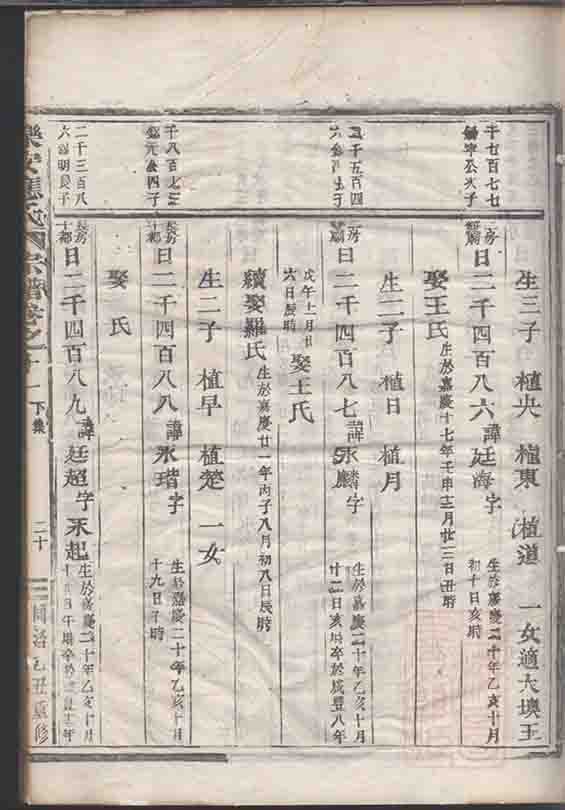 生三子 植央 植東 植道 一女適大墺王
千七百七七
公次子
曰二千四百八六諱廷海字 生於嘉慶二十年乙亥十月初十日亥時
娶王氏 生於嘉慶十七年壬申十二月廿三日丑時
生二子 植日 植月
千五百四
曰二千四百八七諱永麟字 生於嘉慶二十年乙亥十月廿二日亥時卒於咸豐八年
戊午十一月廿六日辰時 娶王氏
續娶羅氏 生於嘉慶廿一年丙子八月初八日辰時
生二子 植早 植楚 一女
千八百
公四子
曰二千四百八八諱永瑎字 生於嘉慶二十年乙亥十月十九日子時
娶 氏
二千三百八
六 明長子
長房
曰二千四百八九諱廷超字永起 生於嘉慶二十年乙亥十月
日午時卒於
樂安 宗譜卷之十一 下集 二十 同治己丑重修